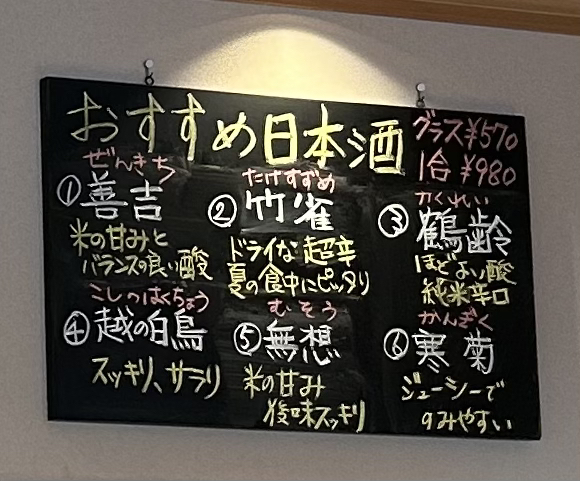 おすすめ日本酒
グラス ¥570
1合 ¥980
ぜんきち
① 善吉
米の甘みと
バランスの良い酸
たけすずめ
② 竹雀
ドライな超辛
夏の食中にピッタリ
かくれい
③ 鶴齢
ほどよい酸
純米辛口
こしのはくちょう
④ 越の白鳥
スッキリ、サラリ
むそう
⑤ 無想
米の甘み
後味スッキリ
かんぎく
⑥ 寒菊
ジューシーで
のみやすい